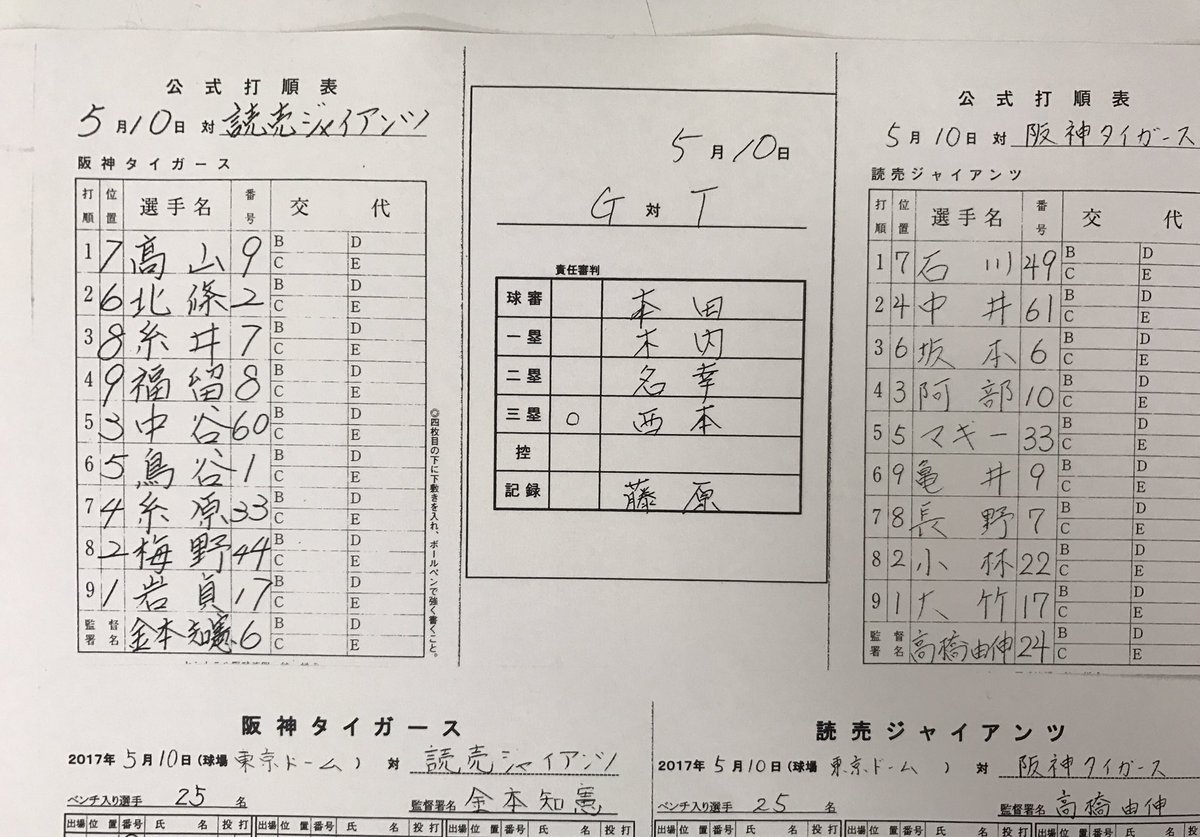 公式打順表
5月10日 対 読売ジャイアンツ
阪神タイガース
打順 位置 選手名 番号 交代
1 7 髙山 9 B D C E
2 6 北條 2 B D C E
3 8 糸井 7 B D C E
4 9 福留 8 B D C E
5 3 中谷 60 B D C E
6 5 鳥谷 1 B D C E
7 4 糸原 33 B D C E
8 2 梅野 44 B D C E
9 1 岩貞 17 B D C E
監督署名 金本知憲 6 B D C E
◎四枚目の下に下敷きを入れ、ボールペンで強く書くこと。
5月10日
G 対 T
責任審判
球審 本田
一塁 木内
二塁 名幸
三塁 ○西本
控
記録 藤原
公式打順表
5月10日 対 阪神タイガース
読売ジャイアンツ
打順 位置 選手名 番号 交代
1 7 石川 49 B D C E
2 4 中井 61 B D C E
3 6 坂本 6 B D C E
4 3 阿部 10 B D C E
5 5 マギー 33 B D C E
6 9 亀井 9 B D C E
7 8 長野 7 B D C E
8 2 小林 22 B D C E
9 1 大竹 17 B D C E
監督署名 高橋由伸 24 B D C E
阪神タイガース
2017年5月10日(球場 東京ドーム) 対 読売ジャイアンツ
ベンチ入り選手 25名 監督署名 金本知憲
出場 位置 番号 氏名 投打 出場 位置 番号 氏名 投打 出場 位置 番号 氏名 投打
読売ジャイアンツ
2017年5月10日(球場 東京ドーム) 対 阪神タイガース
ベンチ入り選手 25名 監督署名 高橋由伸
出場 位置 番号 氏名 投打 出場 位置 番号 氏名 投打 出場 位置 番号 氏名